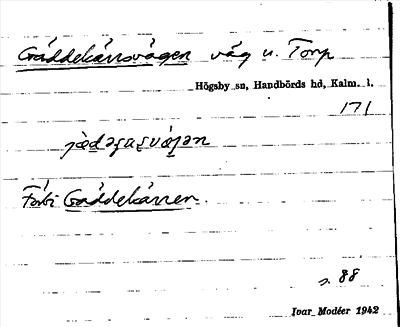 Gäddekärrsvägen väg u. Torp
Högsby sn, Handbörds hd, Kalm. l.
171
Förbi Gäddekärren.
s. 88
Ivar Modéer 1942